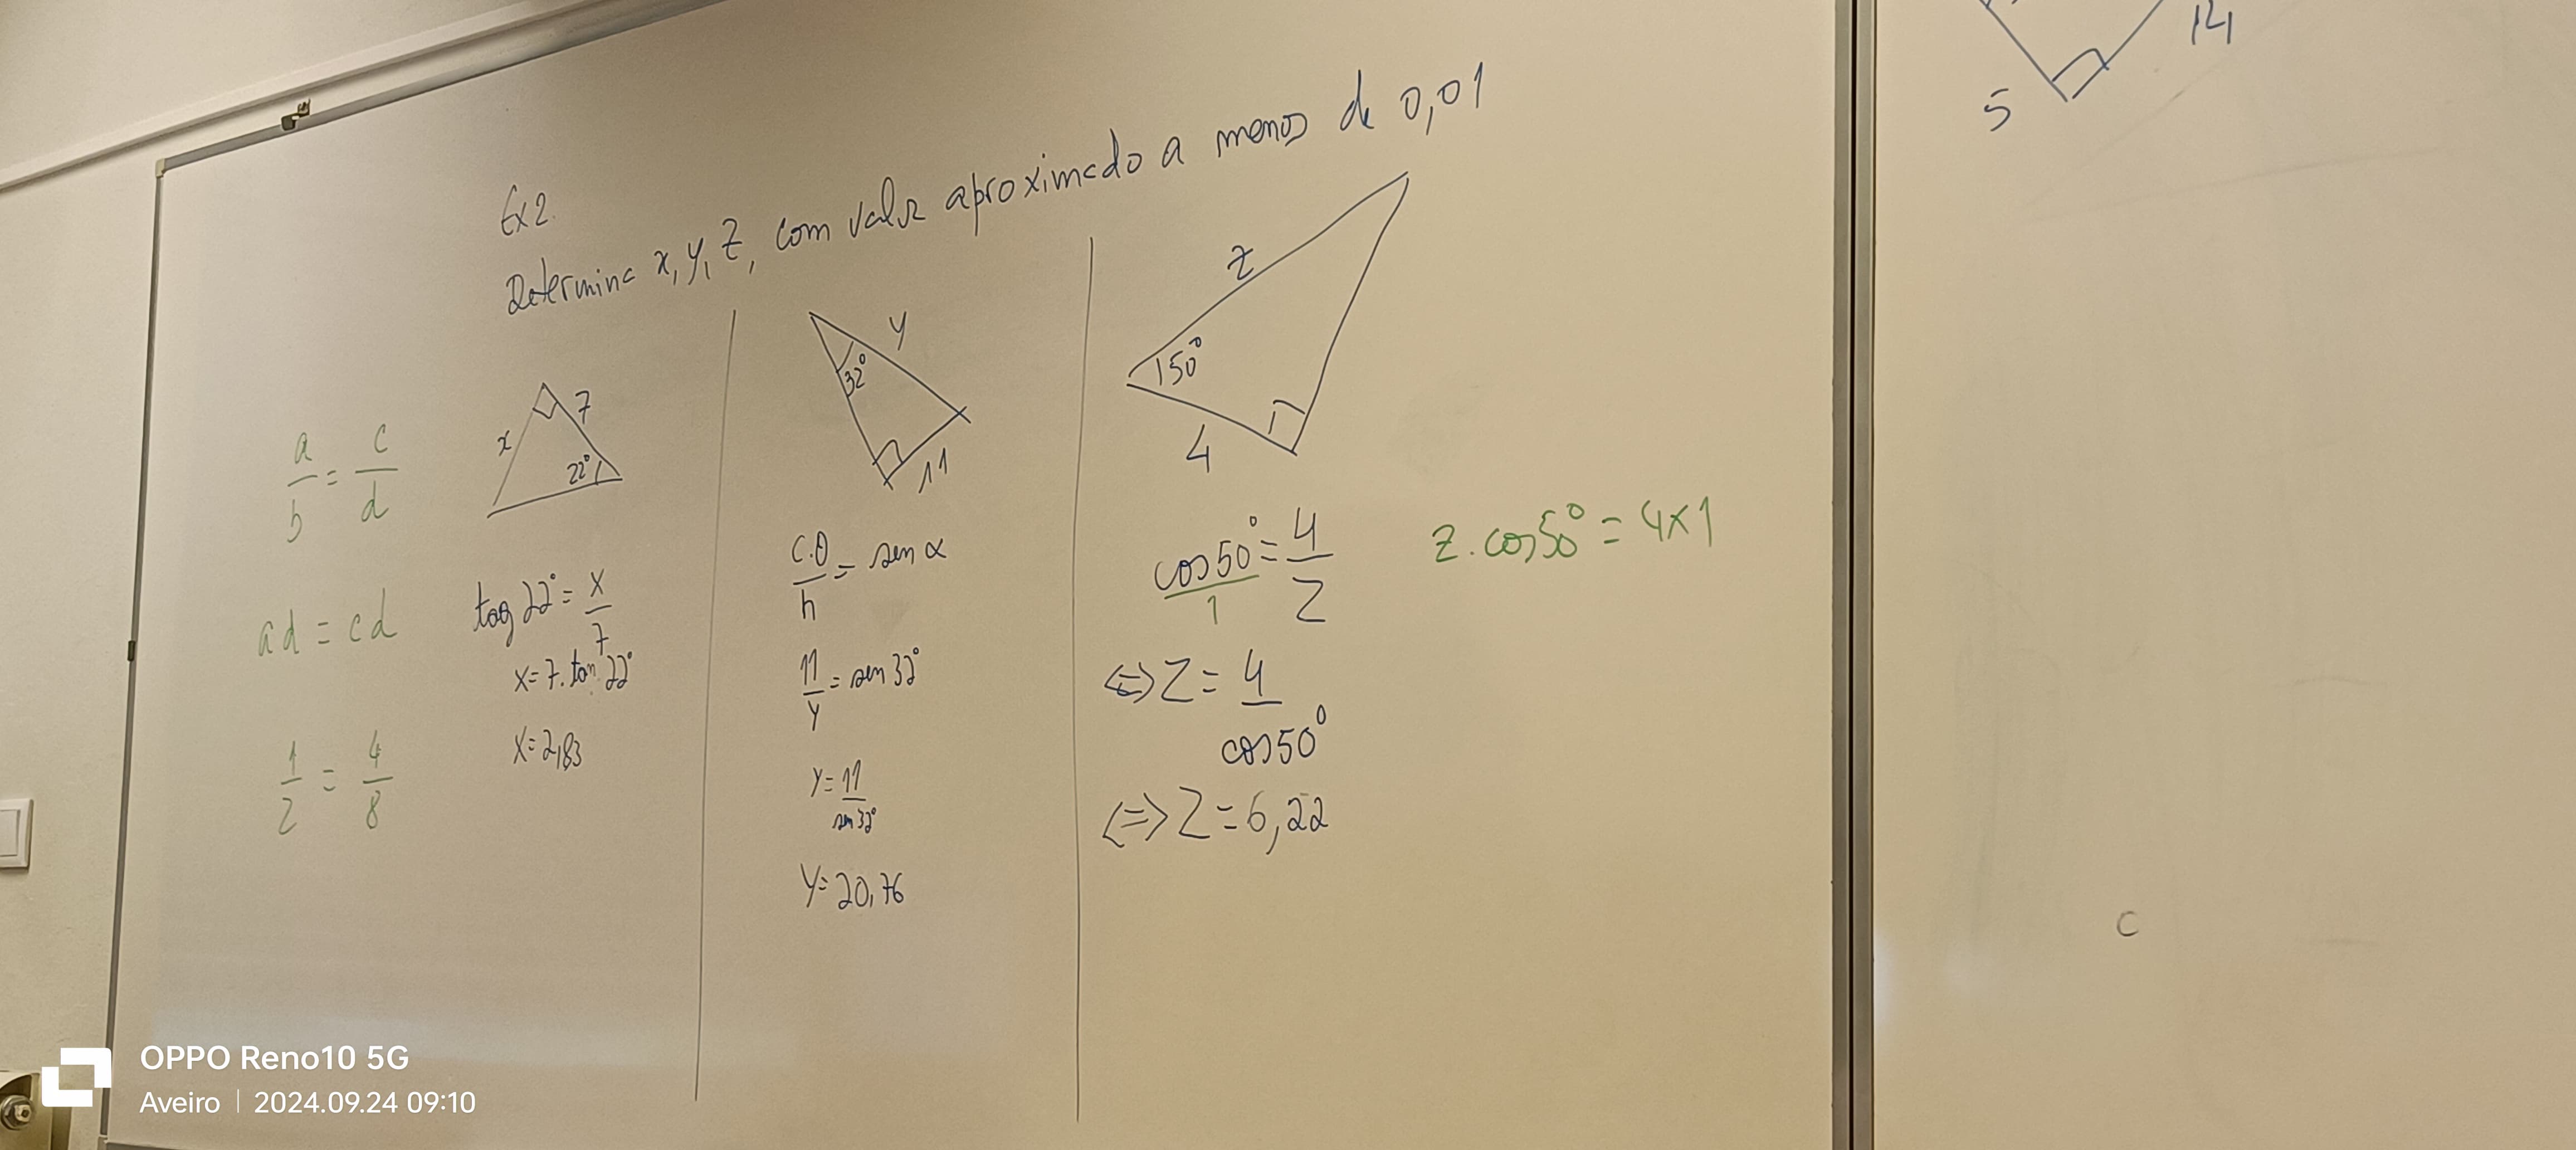 Ex2.
Determina x, y, z, com valor aproximado a menos de 0,01
a/b = c/d
ad = cd
1/2 = 4/8
x
7
22°
tag 22° = x/7
x = 7 . tan 22°
x = 2,83
y
32°
11
C.O/h = sen α
11/y = sen 32°
y = 11/sen 32°
y = 20,76
z
50°
4
cos 50°/1 = 4/z
z . cos 50° = 4 x 1
⇔ z = 4/cos 50°
⇔ z = 6,22
5
14
C
OPPO Reno10 5G
Aveiro | 2024.09.24 09:10